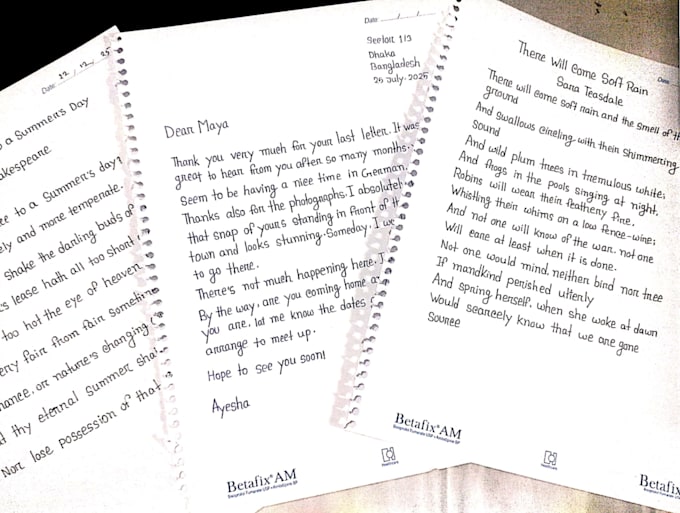 Date: 22/12/25
o a Summer's Day
akespeare
ee to a Summer's day?
ely and more temperate.
shake the darling buds of
's lease hath all too short
too hot the eye of heaven
ery fair from fair sometime
hance, or nature's changing
t thy eternal summer shal
Nor lose possession of that
Date / /
Sector 1/3
Dhaka
Bangladesh
25 July, 2025
Dear Maya
Thank you very much for your last letter. It was
great to hear from you after so many months.
Seem to be having a nice time in German.
Thanks also for the photographs. I absolutel
that snap of yours standing in front of th
town and looks stunning. Someday, I w
to go there.
There's not much happening here. I
By the way, are you coming home a
you are, let me know the dates
arrange to meet up.
Hope to see you soon!
Ayesha
Betafix AM
Bisoprolol Fumarate USP + Amlodipine BP
Healthcare
Date
There Will Come Soft Rain
Sara Teasdale
There will come soft rain and the smell of th
ground
And swallows circling with their shimmering
sound
And wild plum trees in tremulous white;
And frogs in the pools singing at night,
Robins will wear their feathery fire,
Whistling their whims on a low fence-wire;
And not one will know of the war, not one
Will care at least when it is done.
Not one would mind, neither bird nor tree
If mankind perished utterly
And spring herself, when she woke at dawn
Would scarcely know that we are gone
Source
Betafix AM
Bisoprolol Fumarate USP + Amlodipine BP
Healthcare
Betafix